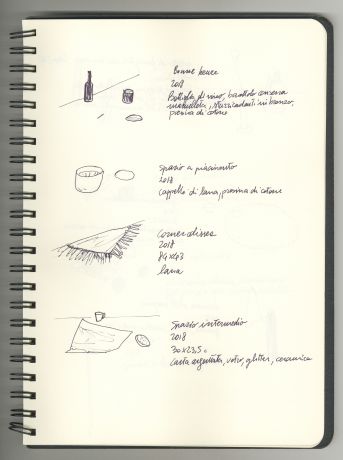 Bonne heure
2018
Bottiglia di vino, barattolo ancora
marmellata, stuzzicadenti in bronzo,
piccina di cotone
Spazio a piacimento
2018
Cappello di lana, piccina di cotone
Come
2018
84x43
lana
Spazio intermedio
2018
30x23,5 c
Carta argentata, vetro, glitter, ceramica